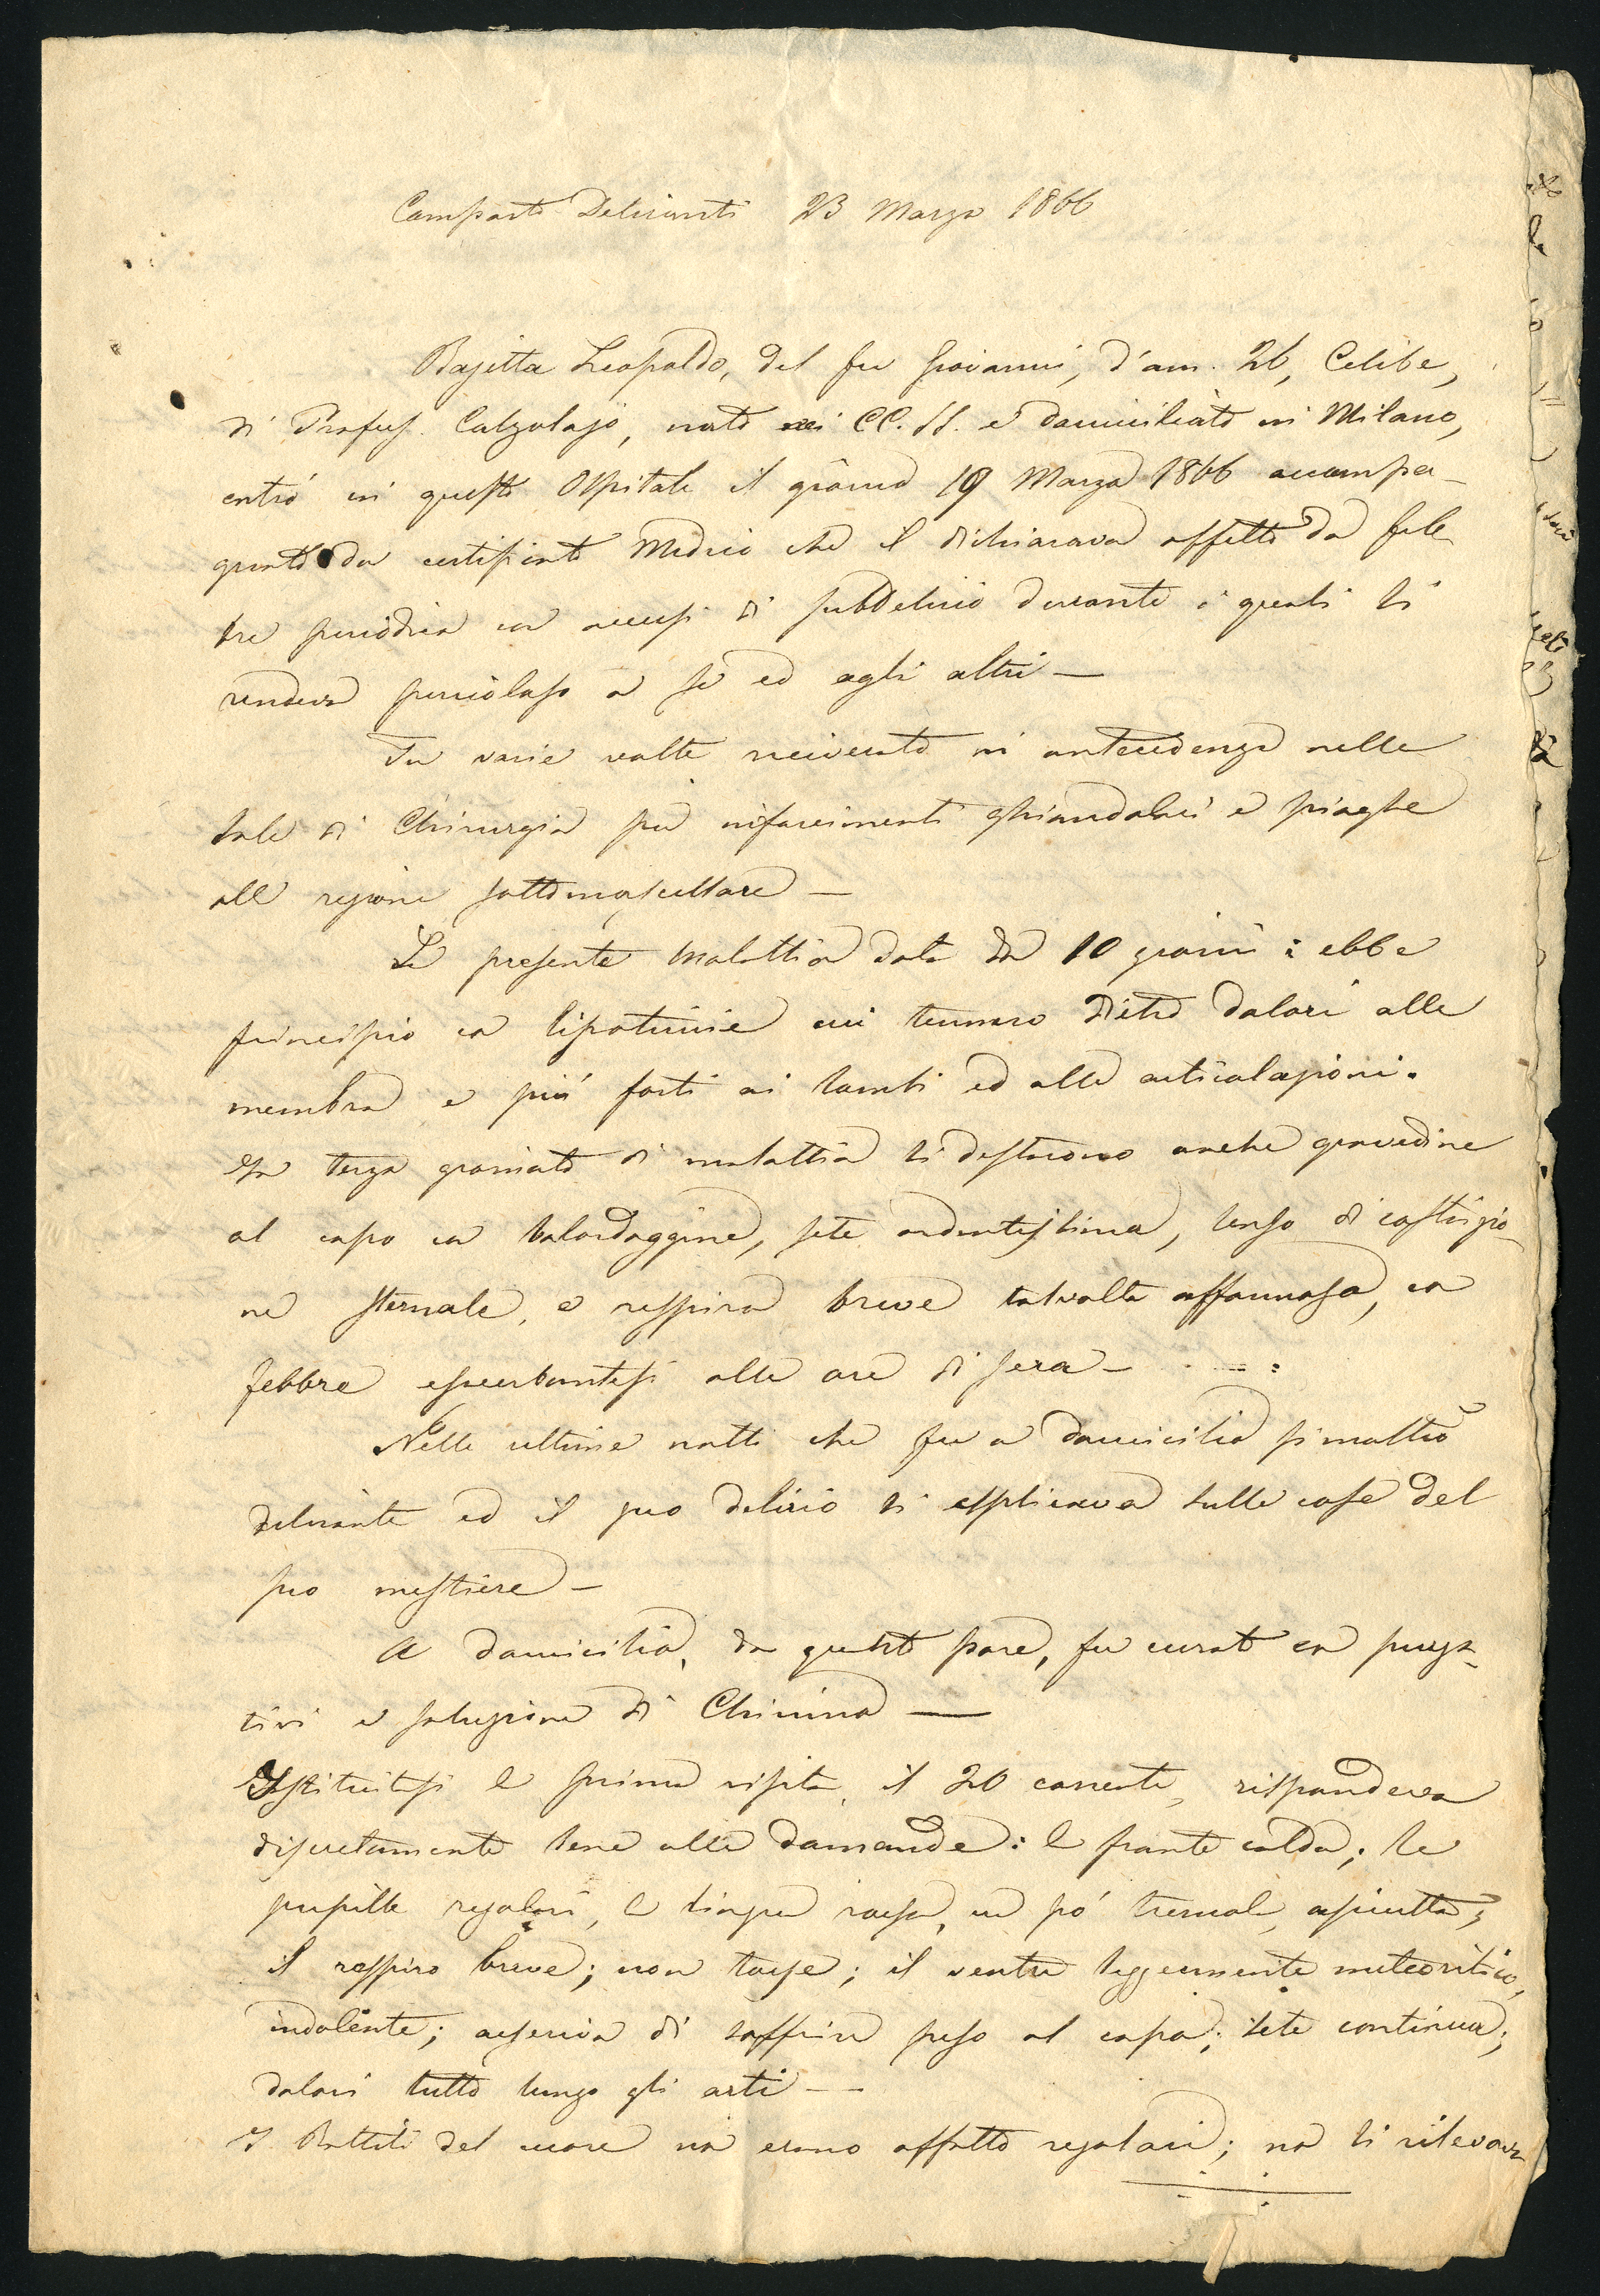 Comparto Deliranti 23 Marzo 1866
Bajetta Leopoldo, del fu Giovanni, d'ann. 26, Celibe,
di Profess. Calzolajo, nato nei CC. SS. e domiciliato in Milano,
entrò in questo Ospitale il giorno 19 Marzo 1866 accompa-
gnato da certificato Medico che il dichiarava affetto da feb-
bre periodica con accessi di subdelirio durante i quali si
rendeva pericoloso a se ed agli altri —
Fu varie volte ricoverato in antecedenza nelle
Sale di Chirurgia per infarcimenti ghiandolari e piaghe
alla regione sottomascellare —
La presente malattia data da 10 giorni: ebbe
principio con lipotimie cui tennero dietro dolori alle
membra e più forti ai lombi ed alle articolazioni.
In terza giornata di malattia si destarono anche gravedine
al capo con balordaggine, sete ardentissima, senso di costrizio-
ne sternale, e respiro breve talvolta affannoso, con
febbre esacerbantesi alle ore di sera —
Nelle ultime notti che fu a domicilio si mostrò
delirante ed il suo delirio si esplicava sulle cose del
suo mestiere —
A domicilio, da quanto pare, fu curato con purga-
tivi e soluzione di Chinino —
Istituitasi la prima visita, il 20 corrente, rispondeva
discretamente bene alle domande: la fronte calda; le
pupille regolari, la lingua rossa, un pó tremola, asciutta;
il respiro breve; non tosse; il ventre leggermente meteoritico,
indolente; asseriva di soffrire peso al capo; sete continua;
dolori tutto lungo gli arti —
I Battiti del cuore non erano affatto regolari; non si rilevava